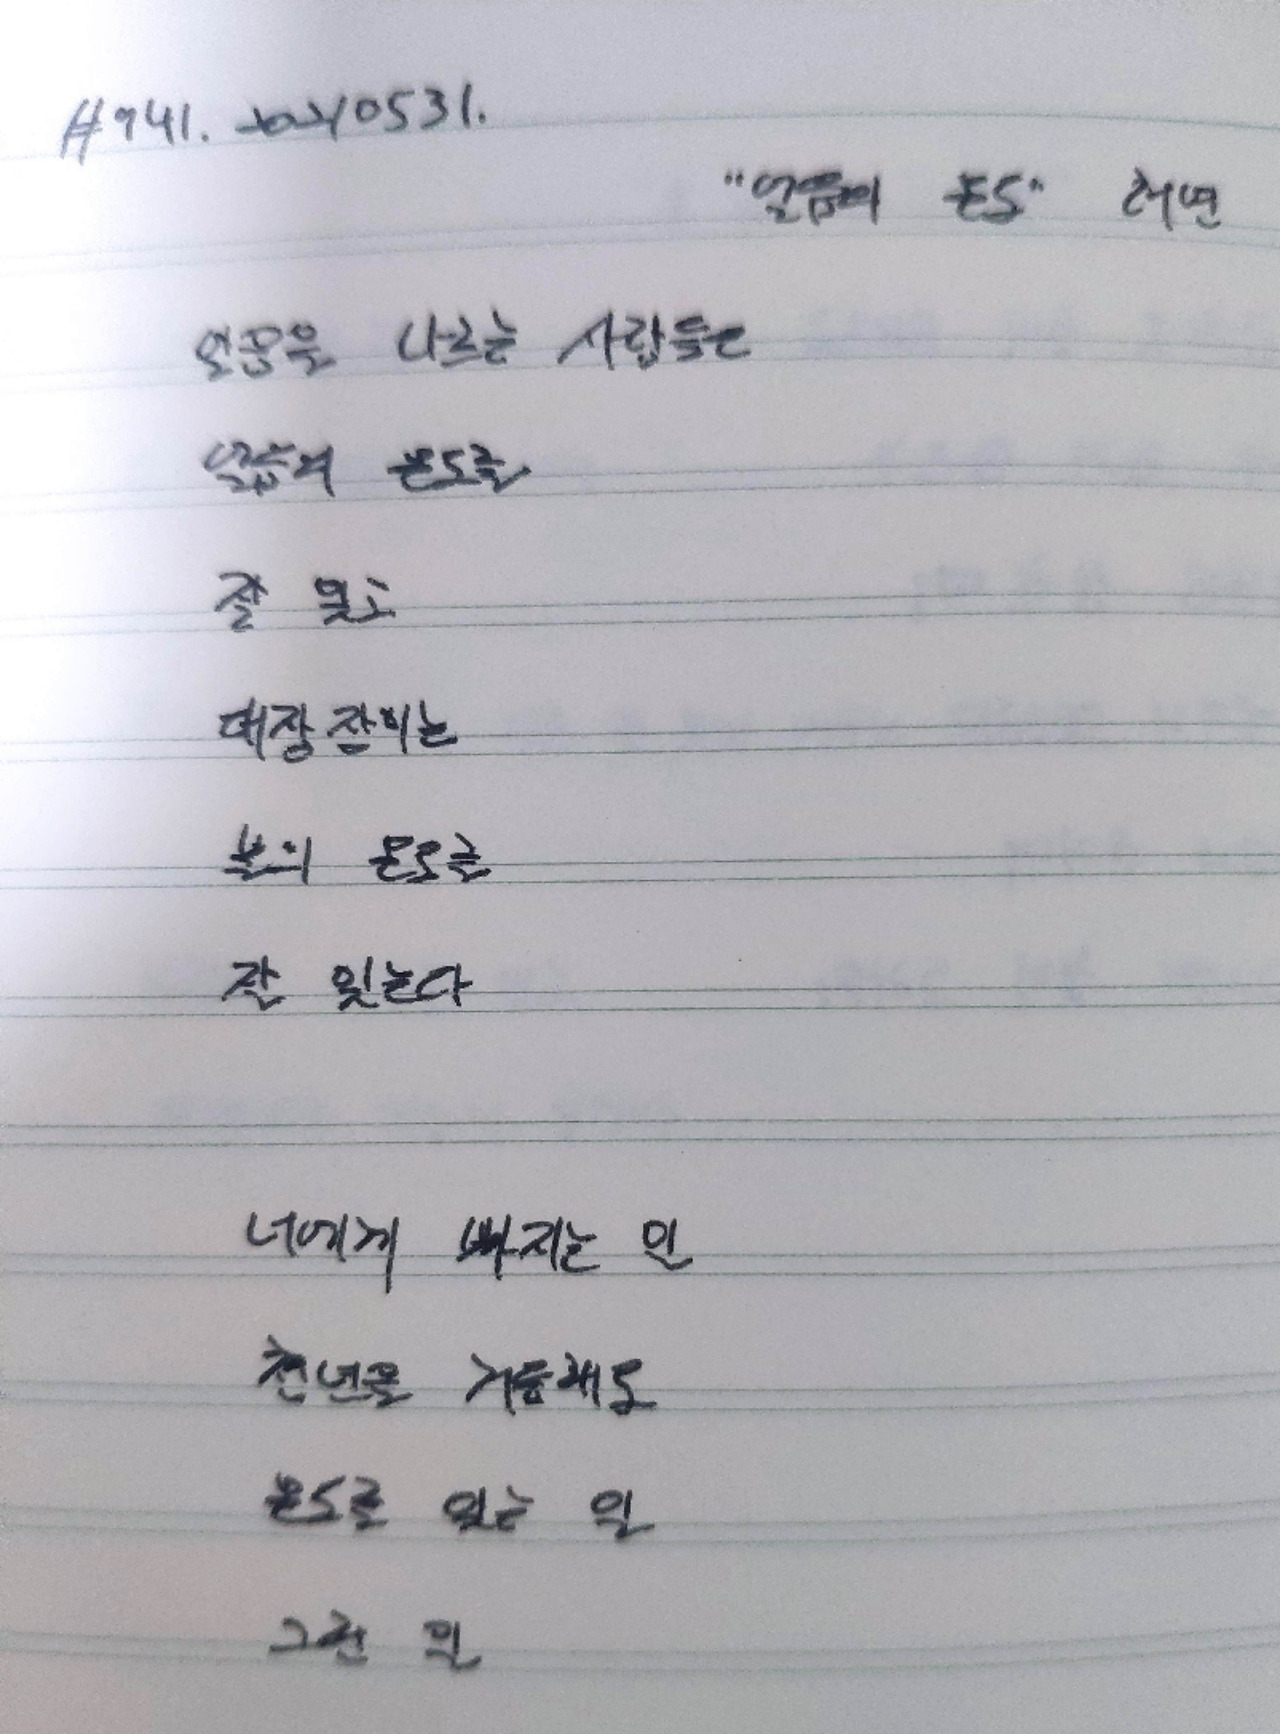 #941. 20210531.
"얼음의 온도" 허연
얼음을 나르는 사람들은
얼음의 온도를
잘 잊고
대장장이는
불의 온도를
잘 잊는다
너에게 빠지는 일
천년을 거듭해도
온도를 잊는 일
그런 일